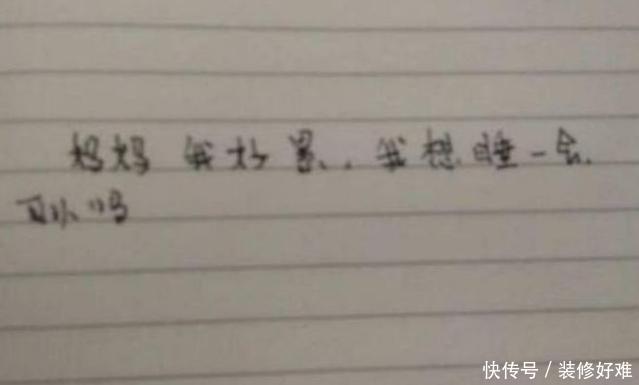 妈妈 我好累.. 我想睡一会.
可以吗
快传号 / 装修好难